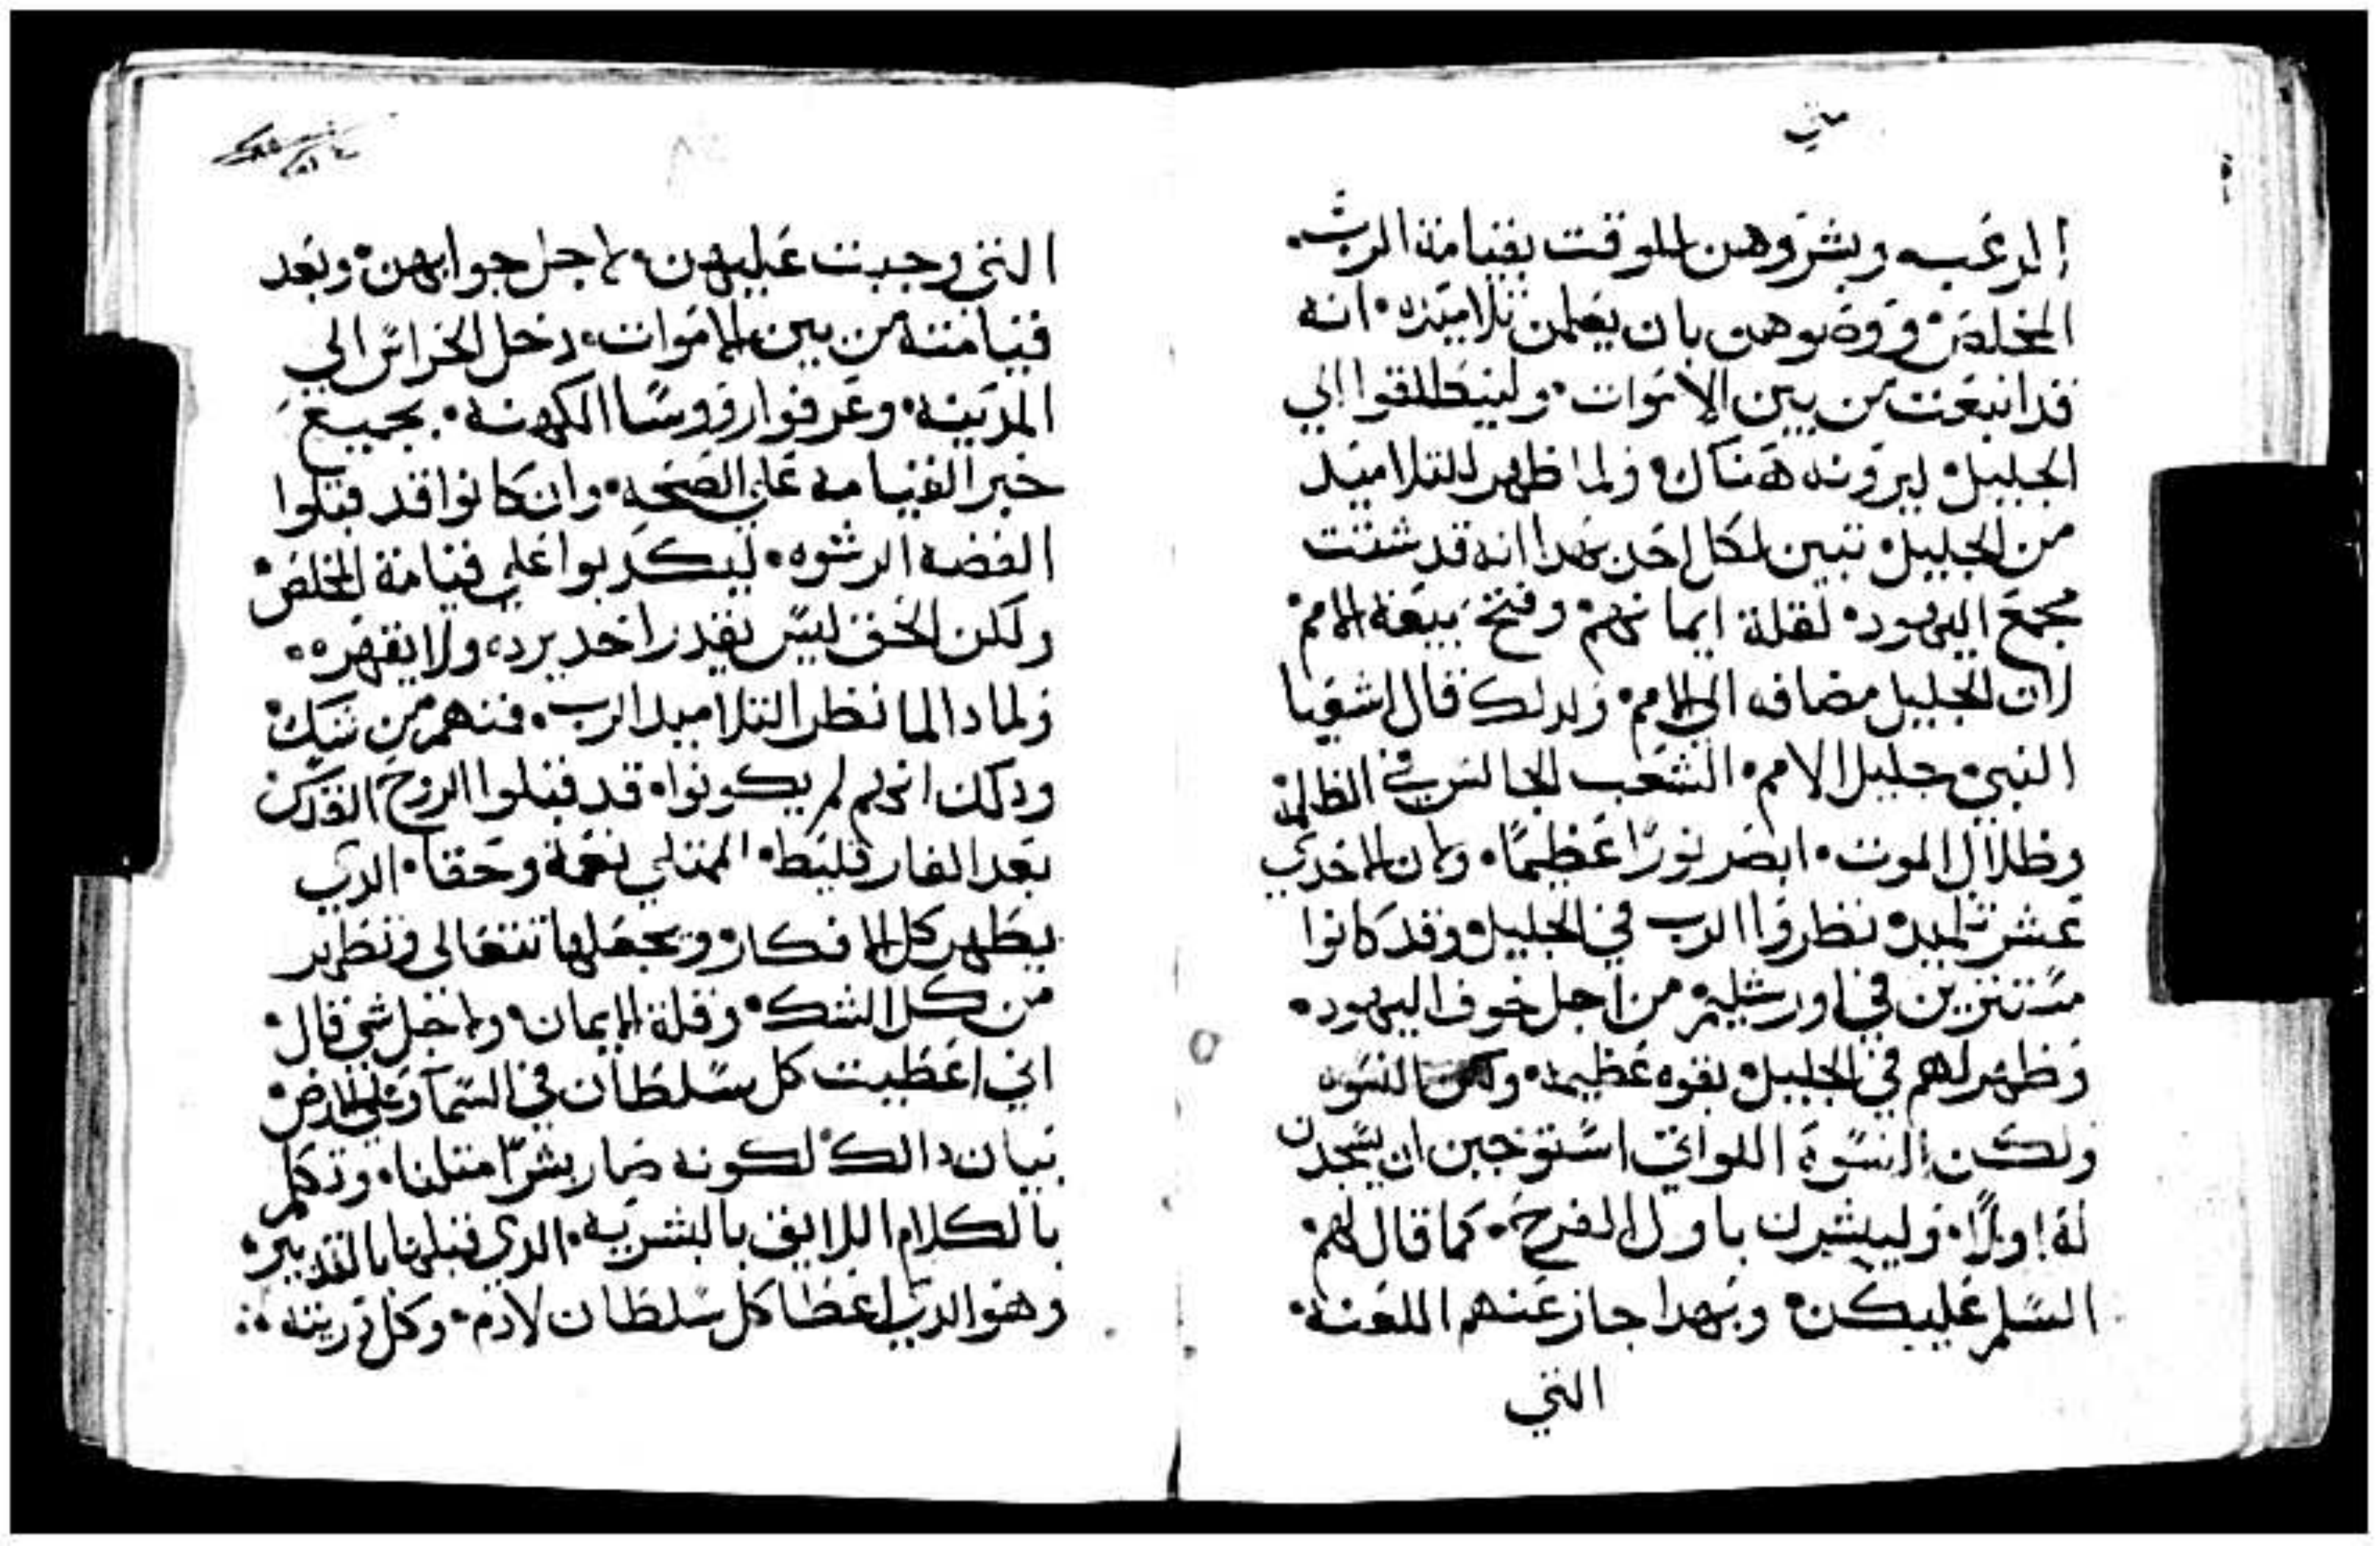 متي
الرعبه وبشروهن للوقت بقيامة الرب•
المخلص• ووصوهن بان يعلمن تلاميذه• انه
قد انبعث من بين الاموات• ولينطلقوا الي
الجليل• ليرونه هناك• ولما ظهر للتلاميد
من الجليل• تبين لكل احد بهدا انه قد شتت
مجمع اليهود• لقلة ايمانهم• وفتح بيعة الامم•
لان الجليل مضافه الي الامم• ولدلك قال اشعيا
النبي• جليل الامم• الشعب الجالس في الظلمة
وظلال الموت• ابصر نورًا عظيمًا• وان الاحدي
عشر تلميد• نظروا الرب في الجليل• وقد كانوا
مستترين في اورشليم• من اجل خوف اليهود•
وظهر لهم في الجليل• بقوه عظيمه• النسوه
ولكن النسوة اللواتي استوجبن ان يسجدن
له اولًا• وليبشرن باول الفرح• كما قال لهم•
السلم عليكن• وبهدا جاز عنهم اللعنة•
التي
التي وجبت عليهن• لاجل جوابهن• وبعد
قيامته من بين الاموات• دخل الحراس الي
المدينه• وعرفوا روسا الكهنة• بجميع
خبر القيامه علي الصحه• وان كانوا قد قبلوا
الفضه الرشوه• ليكدبوا علي قيامة المخلص•
ولكن الحق ليس يقدر احد يرده• ولا يقهره•
ولمادا لما نظر التلاميد الرب• فمنهم من شك•
ودلك انهم لم يكونوا• قد قبلوا الروح القدس
بعد الفارقليط• الممتلي نعمة وحقا• الدي
يطهر كل الافكار• ويجعلها تتعالي وتطهر
من كل الشك• وقلة الايمان• ولاجل شي قال•
اني اعطيت كل سلطان في السما وعلي الارض•
بيان دالك• لكونه صار بشرًا مثلنا• وتكلم
بالكلام اللايق بالبشريه• الدي قبلها بالتدبير•
وهو الدي اعطا كل سلطان لادم• وكل دريته